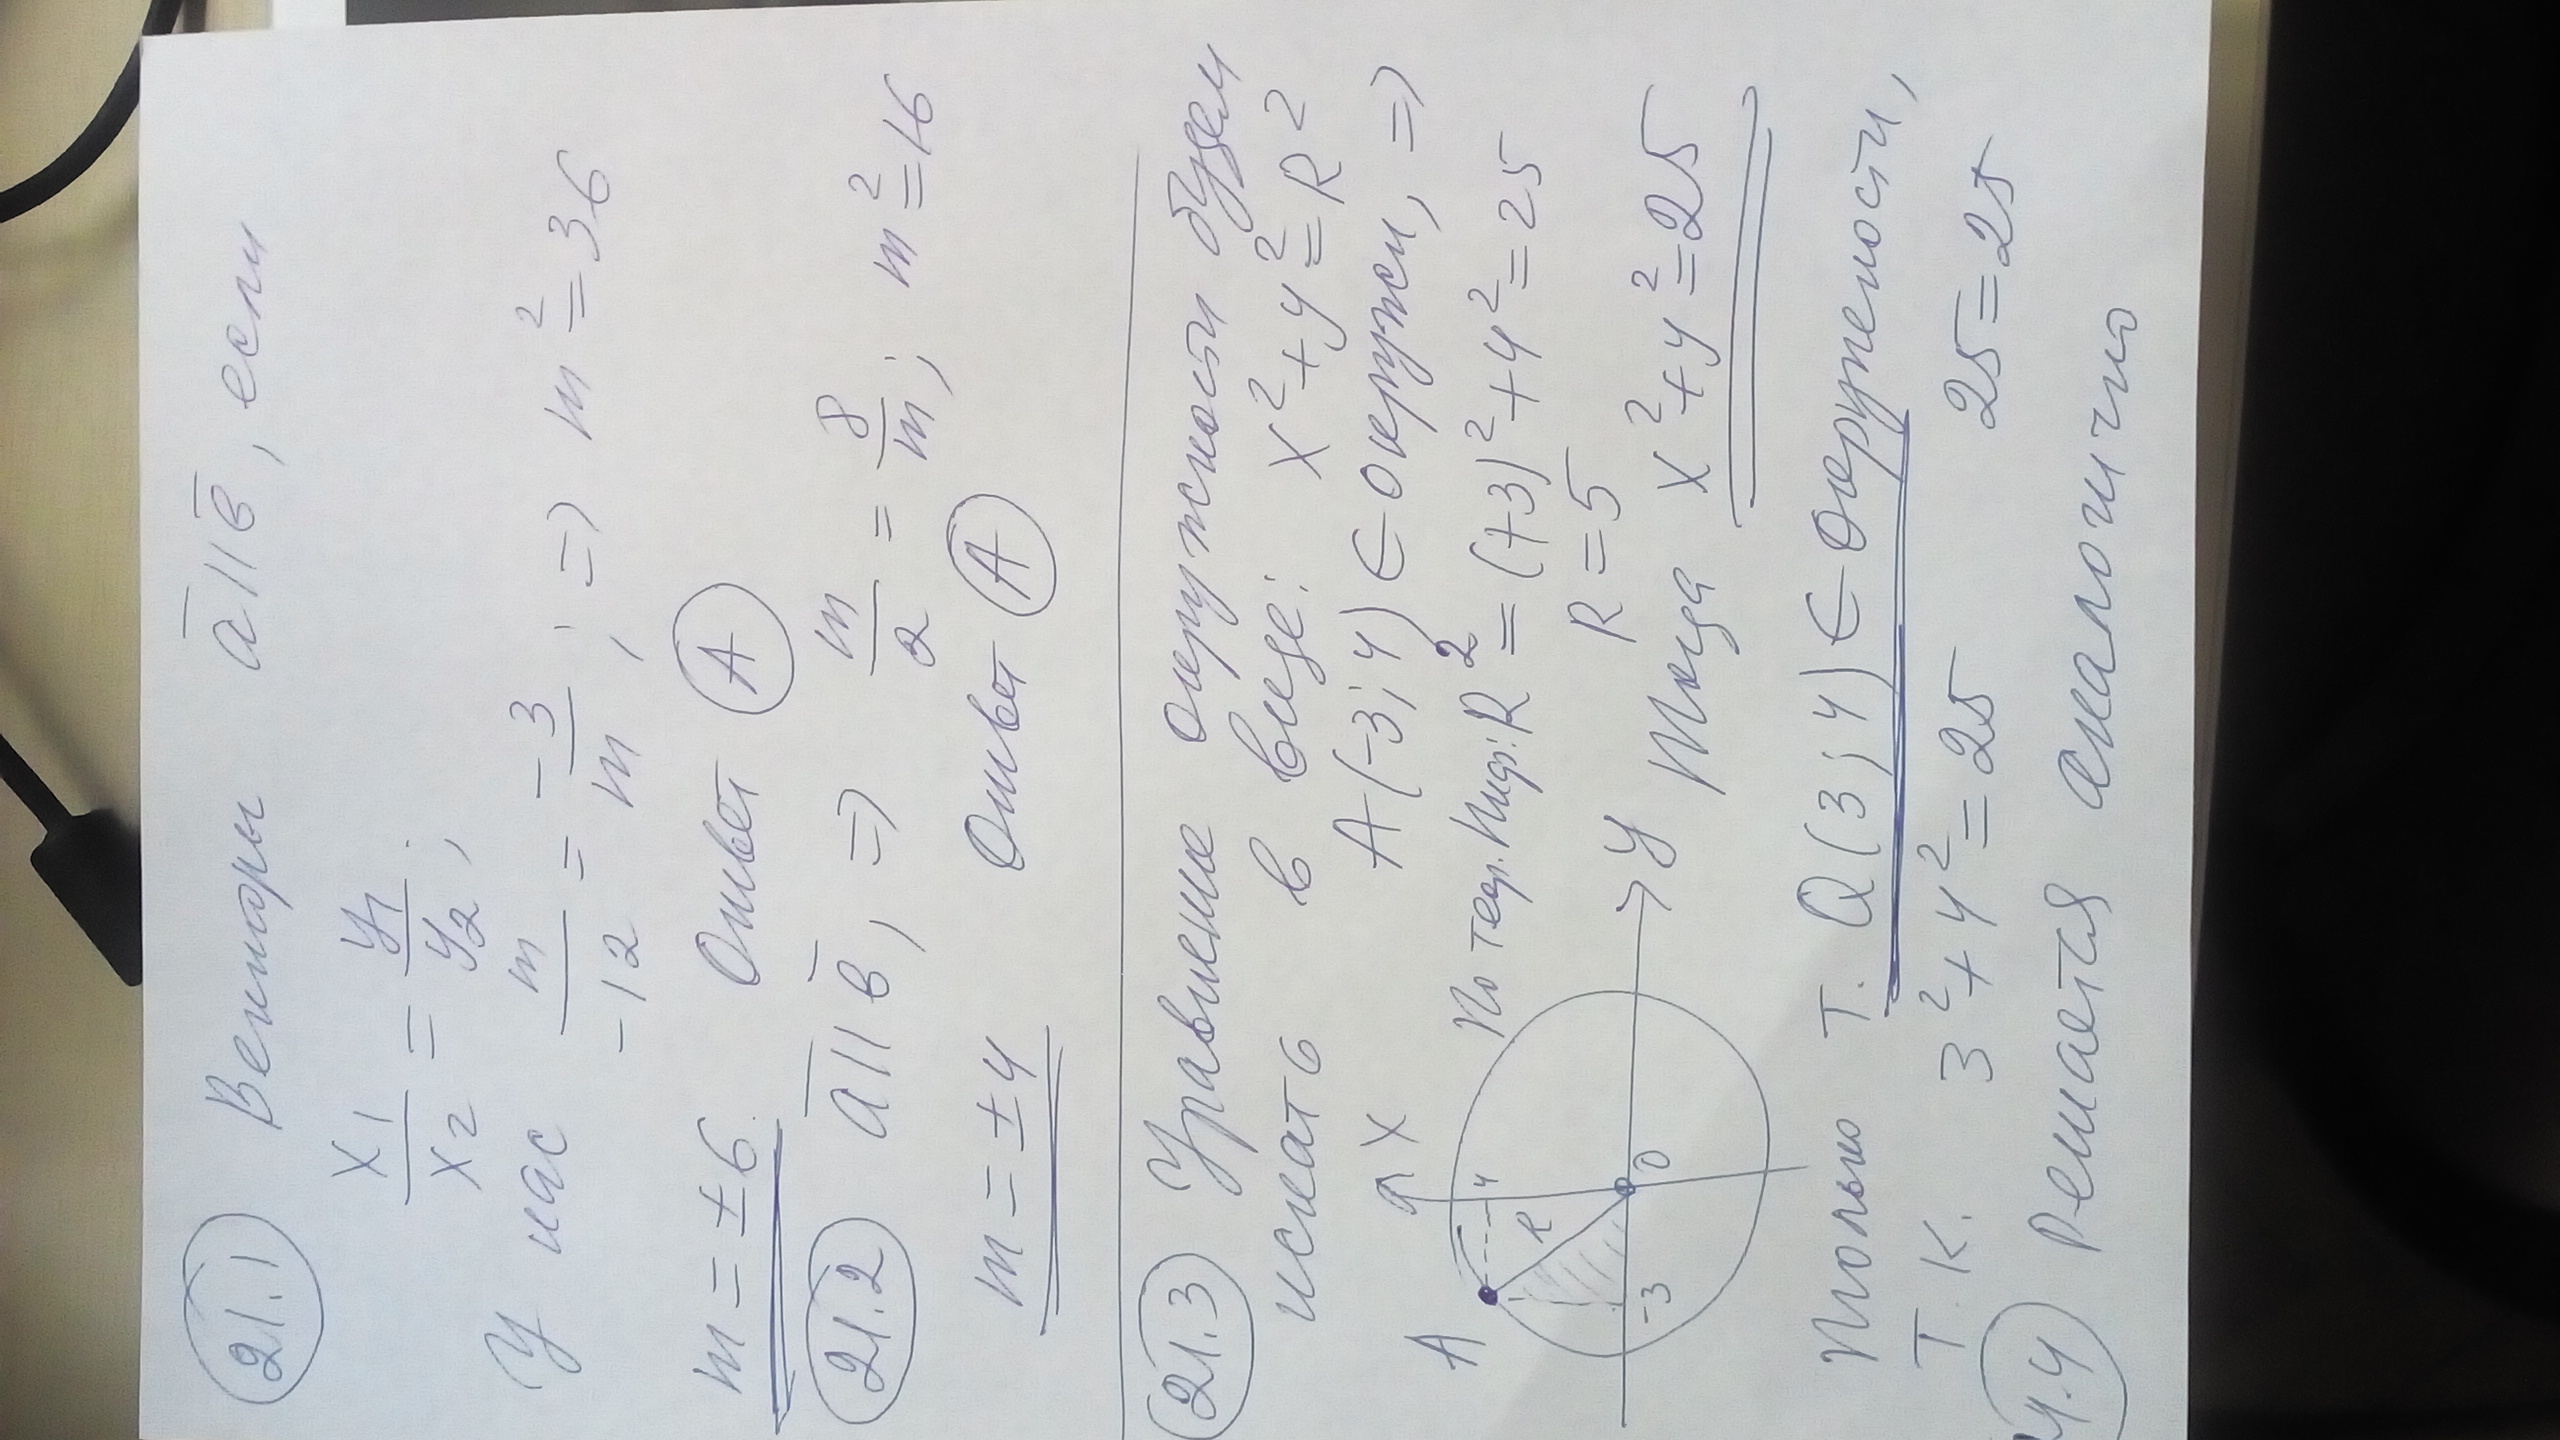 21.1 Векторы a̅ || в̅, если
x₁/x₂ = y₁/y₂;
У нас m/-12 = -3/m; => m² = 36
m = ±6 Ответ А
21.2 a̅ || в̅, => m/2 = 8/m; m² = 16
m = ±4 Ответ А
21.3 Уравнение окружности будем
искать в виде: x² + y² = R²
A(-3; 4) ∈ окружн, =>
По теор. Пиф: R² = (+3)² + 4² = 25
R = 5
Тогда x² + y² = 25
A X R 4 -3 0 y
Только т. Q(3; 4) ∈ окружности,
Т.К. 3² + 4² = 25 25 = 25
.4 Решается аналогично